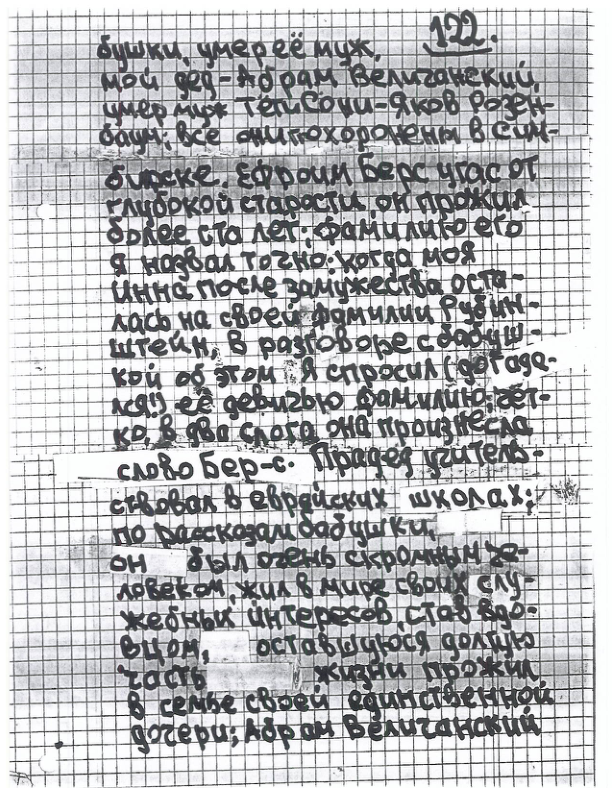 122.
бушки, умер её муж,
мой дед – Абрам Величанский,
умер муж тёти Сони – Яков Розен-
баум; все они похоронены в Сим-
бирске. Ефроим Берс угас от
глубокой старости, он прожил
более ста лет; фамилию его
я назвал точно: когда моя
Инна после замужества оста-
лась на своей фамилии Рубин-
штейн, в разговоре с бабуш-
кой об этом я спросил (догада-
лся!) её девичью фамилию; чёт-
ко, в два слога она произнесла
слово Бер-с. Прадед учитель-
ствовал в еврейских школах;
по рассказам бабушки,
он был очень скромным че-
ловеком, жил в мире своих слу-
жебных интересов, став вдо-
вцом, оставшуюся долгую
часть жизни прожил
в семье своей единственной
дочери; Абрам Величанский